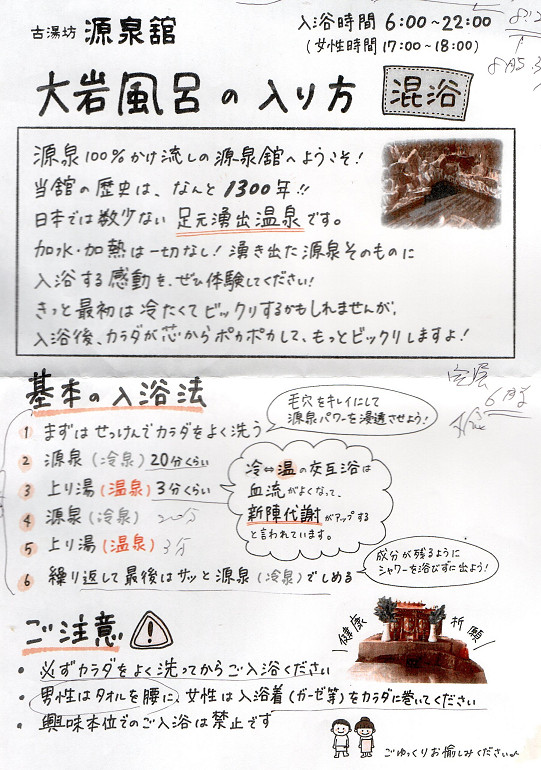 古湯坊 源泉舘
入浴時間 6:00~22:00
(女性時間 17:00~18:00)
大岩風呂の入り方 混浴
源泉100%かけ流しの源泉舘へようこそ!
当舘の歴史は、なんと1300年!!
日本では数少ない足元湧出温泉です。
加水・加熱は一切なし!湧き出た源泉そのものに
入浴する感動を、ぜひ体験してください!
きっと最初は冷たくてビックリするかもしれませんが、
入浴後、カラダが芯からポカポカして、もっとビックリしますよ!
基本の入浴法
毛穴をキレイにして
源泉パワーを浸透させよう!
1 まずはせっけんでカラダをよく洗う
2 源泉(冷泉)20分くらい
3 上り湯(温泉)3分くらい
4 源泉(冷泉) 20分
5 上り湯(温泉) 3分
6 繰り返して最後はサッと源泉(冷泉)でしめる
冷⇔温の交互浴は
血流がよくなって、
新陳代謝がアップする
と言われています。
成分が残るように
シャワーを浴びずに出よう!
ご注意
健康
祈願
• 必ずカラダをよく洗ってからご入浴ください
• 男性はタオルを腰に、女性は入浴着(ガーゼ等)をカラダに巻いてください
• 興味本位でのご入浴は禁止です
ごゆっくりお愉しみください♪